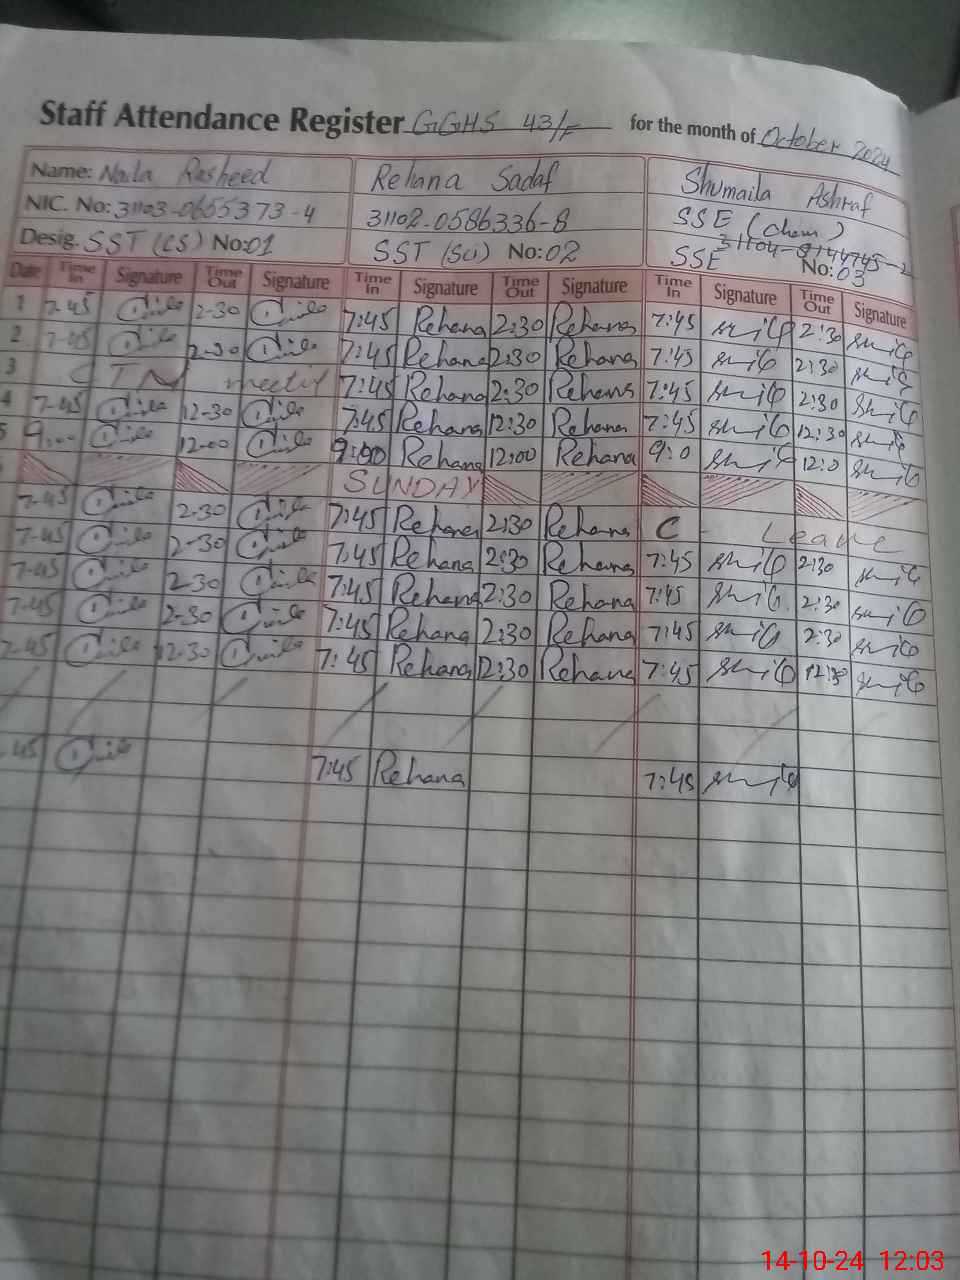 Staff Attendance Register GGHS 43/F for the month of October 2024
Name: Naila Rasheed Rehana Sadaf Shumaila Ashraf
NIC. No: 31103-0655373-4 31102-0586336-8 SSE (Chem)
31104-8144745-2
Desig. SST (CS) No: 01 SST (Sci) No: 02 SSE No: 03
Date Time In Signature Time Out Signature Time In Signature Time Out Signature Time In Signature Time Out Signature
1 7-45 2-30 7:45 Rehana 2:30 Rehana 7:45 2:30
2 7-45 2-30 7:45 Rehana 2:30 Rehana 7:45 2:30
3 meeting 7:45 Rehana 2:30 Rehana 7:45 2:30
4 7-45 12-30 7:45 Rehana 12:30 Rehana 7:45 12:30
5 9:00 12-00 9:00 Rehana 12:00 Rehana 9:0 12:0
SUNDAY
7-45 2-30 7:45 Rehana 2:30 Rehana C Leave
7-45 2-30 7:45 Rehana 2:30 Rehana 7:45 2:30
7-45 2-30 7:45 Rehana 2:30 Rehana 7:45 2:30
7-45 2-30 7:45 Rehana 2:30 Rehana 7:45 2:30
7-45 12-30 7:45 Rehana 12:30 Rehana 7:45 12:30
7:45 Rehana 7:45
14-10-24 12:03